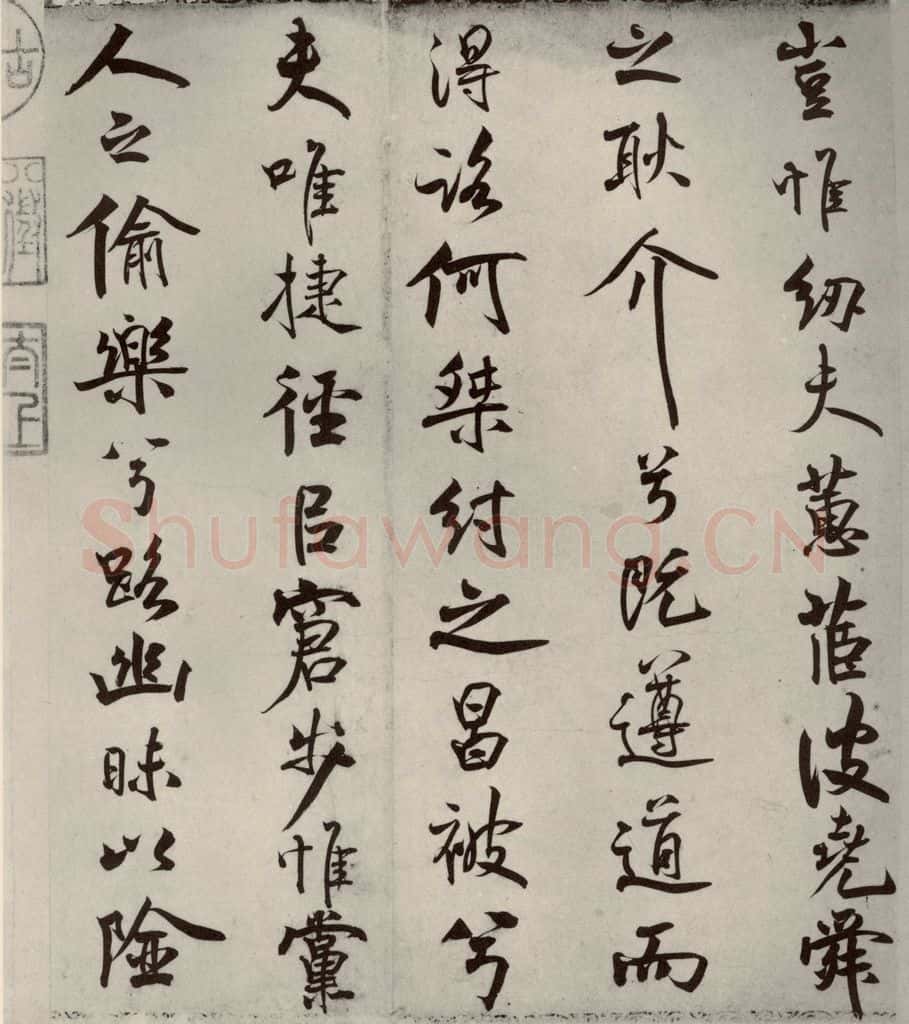 豈惟紉夫蕙茞彼堯舜
之耿介兮既遵道而
得路何桀紂之昌被兮
夫唯捷徑㠯窘步惟黨
人之偷樂兮路幽昧以險
Shufawang.CN